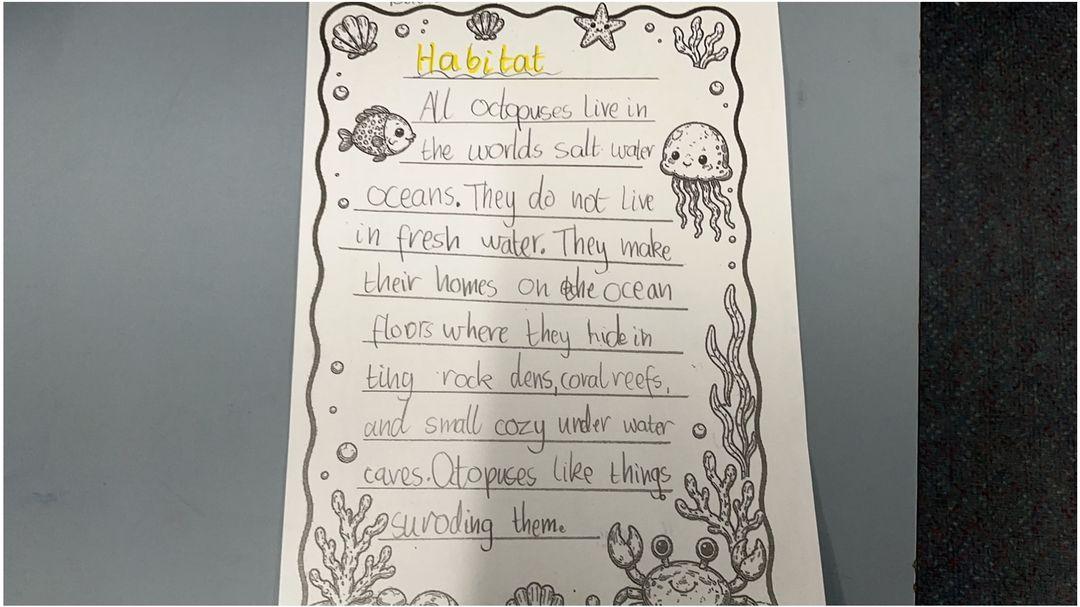 Habitat
All octopuses live in
the worlds salt water
oceans. They do not live
in fresh water. They make
their homes on the ocean
floors where they hide in
ting rock dens, coral reefs,
and small cozy under water
caves. Octopuses like things
suroding them.